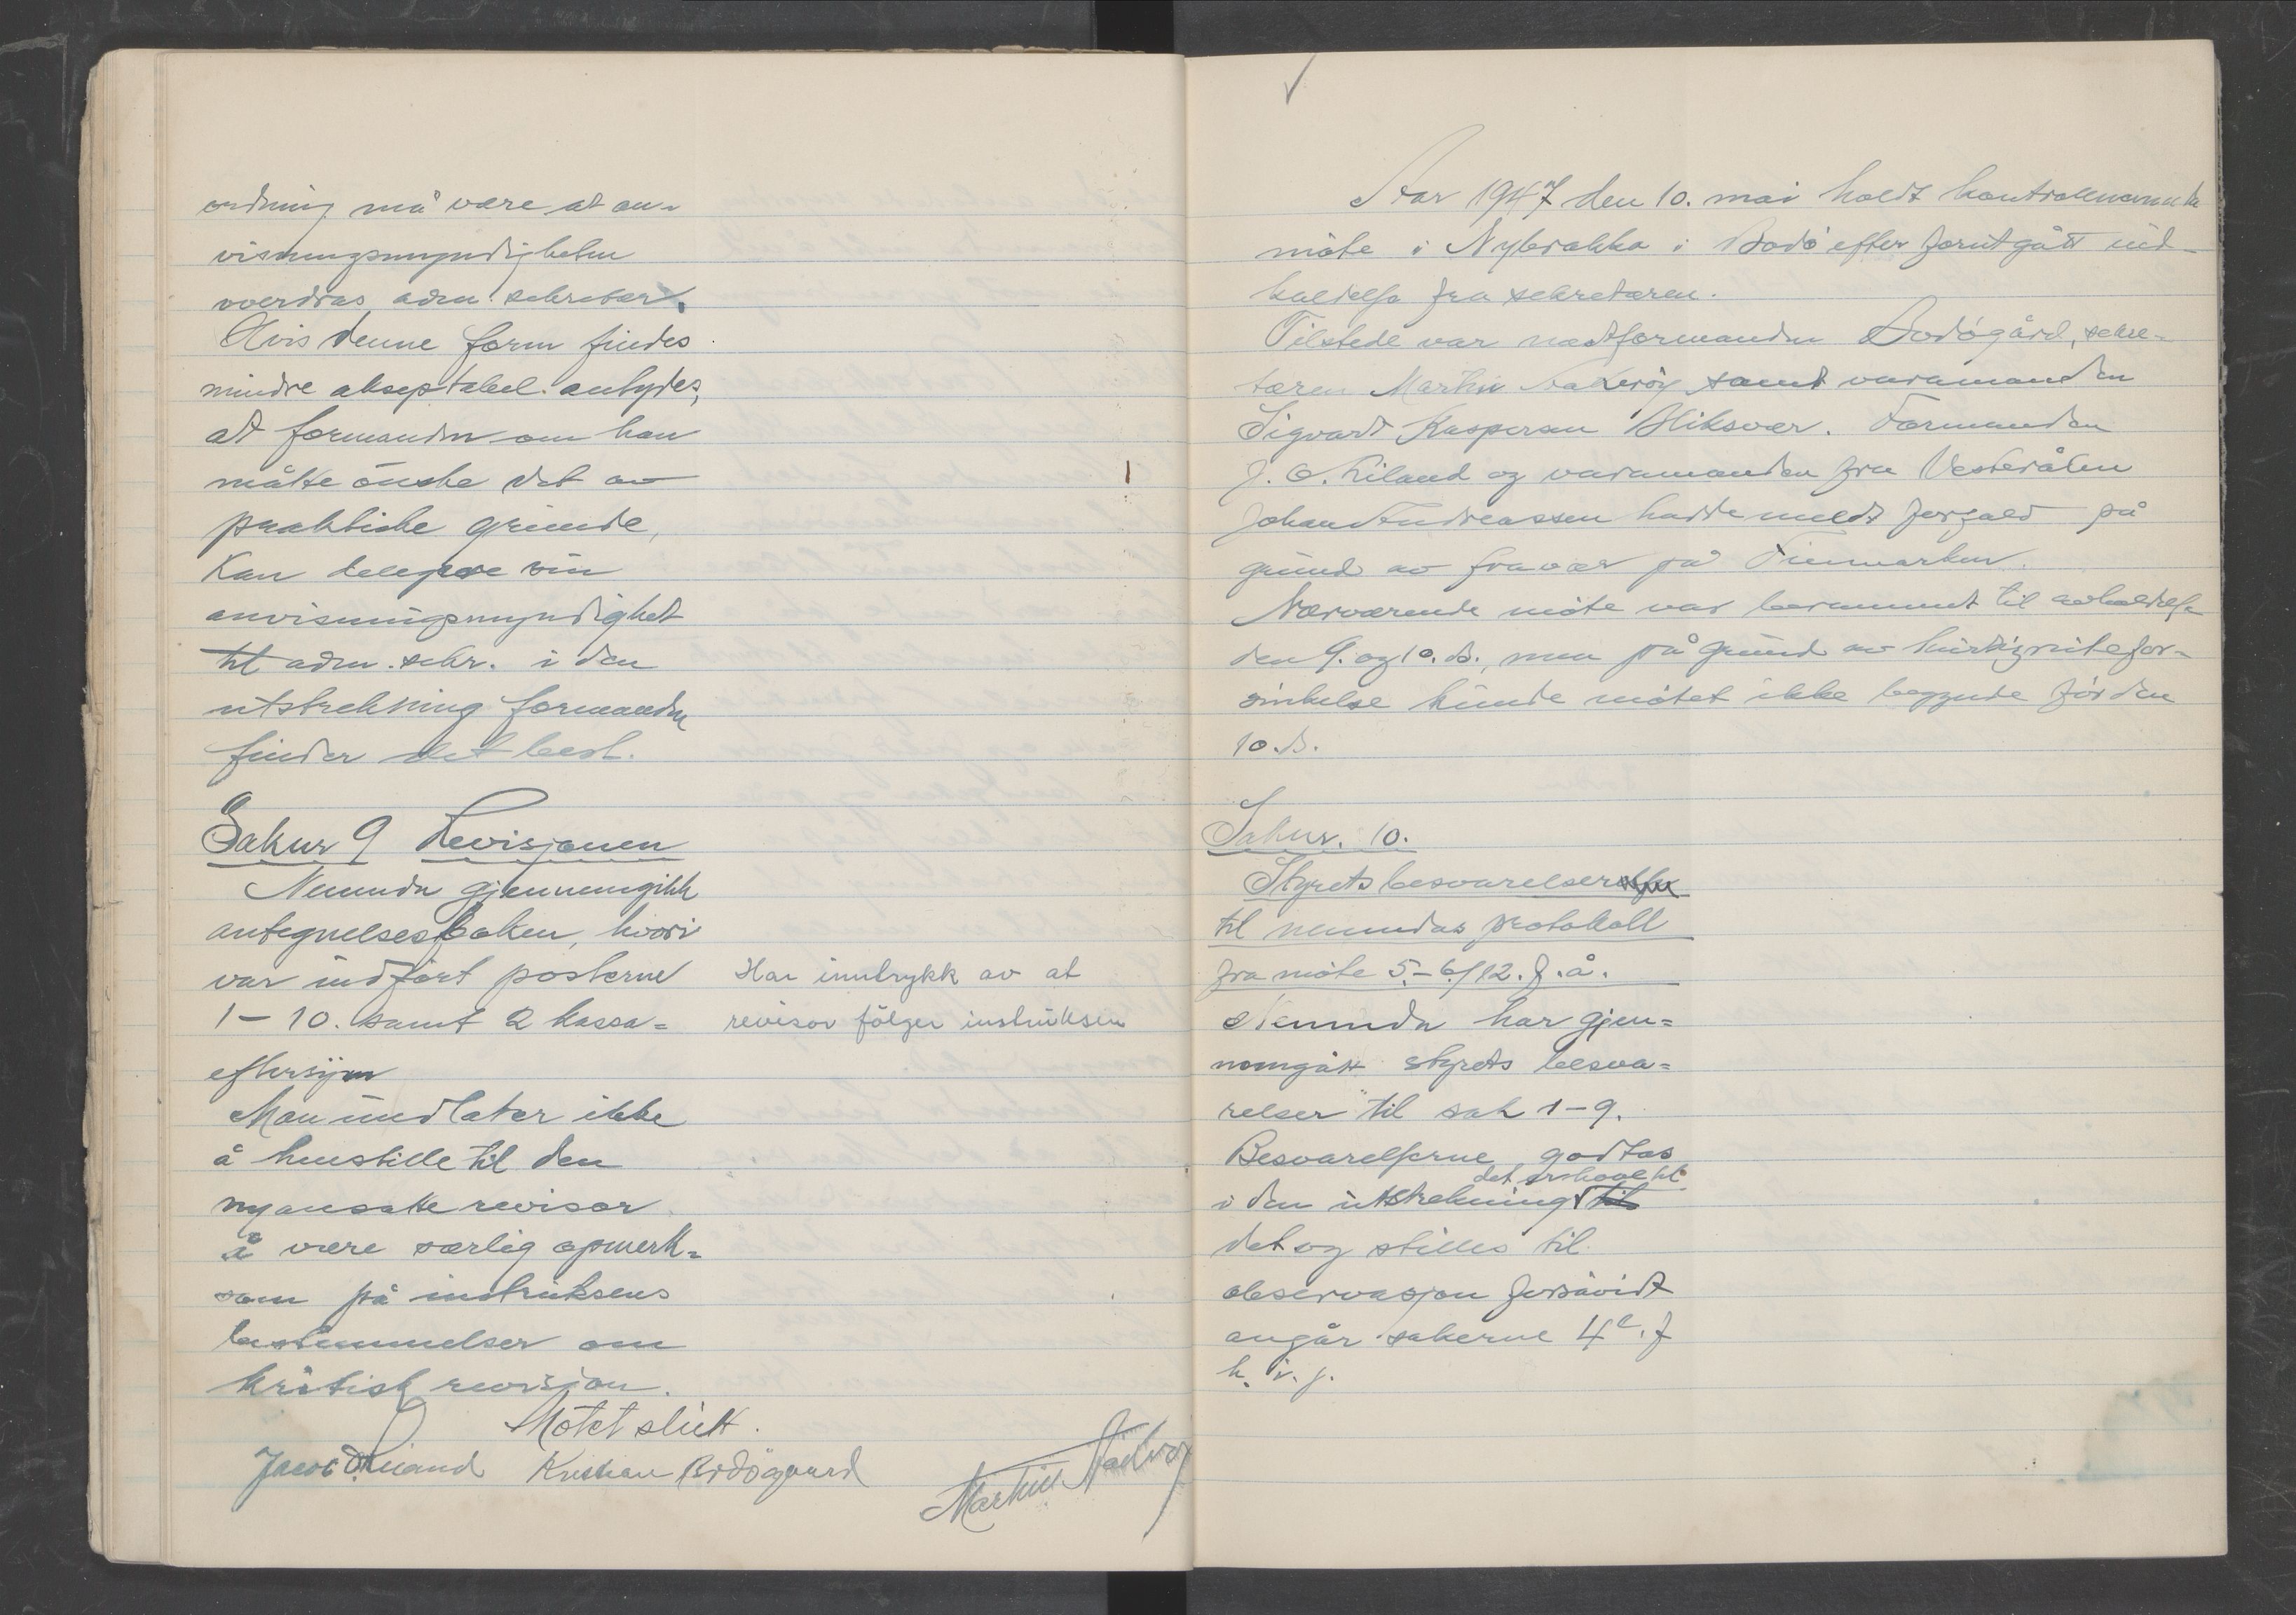 ordning må være at an-
visningsmyndigheten
overdras adm. sekretær.
Hvis denne form findes
mindre akseptabel antydes,
at formanden om han
måtte ønske det av
praktiske grunde,
kan delegere sin
anvisningsmyndighet
til adm. sekr. i den
utstrekning formanden
finder det best.
Saknr 9 Revisjonen
Nemnda gjennemgikk
antegnelsesboken, hvori
var indført posterne
1-10. samt 2 kassa-
eftersyn
Man undlater ikke
å henstille til den
nyansatte revisor
å være særlig opmerk-
som på instruksens
bestemmelser om
kritisk revisjon.
Har inntrykk av at
revisor følger instruksen
Møtet slutt.
Kristian Bodøgaard
Martin
Aar 1947 den 10. mai holdt kontrollnemnda
møte i Nybrakka i Bodø efter forutgått ind-
kaldelse fra sekretæren.
Tilstede var næstformanden Bodøgård, sekre-
tæren Martin samt varamanden
Sigvart Kaspersen Bliksvær. Formanden
J. O. Liland og varamanden fra Vesterålen
Johan Andreassen hadde meldt forfald på
grund av fravær på Finmarken.
Nærværende møte var berammet til avholdelse
den 9. og 10. ds., men på grund av hurtigrutefor-
sinkelse kunde møtet ikke begynde før den
10. ds.
Saknr. 10.
Styrets besvarelser
til nemndas protokoll
fra møte 5.-6./12. f.å.
Nemnda har gjen-
nomgått styrets besva-
relser til sak 1-9.
Besvarelserne godtas
det er hove til
i den utstrekning til
det og stilles til
observasjon forsåvidt
angår sakerne 4 e. f
h. i. j.